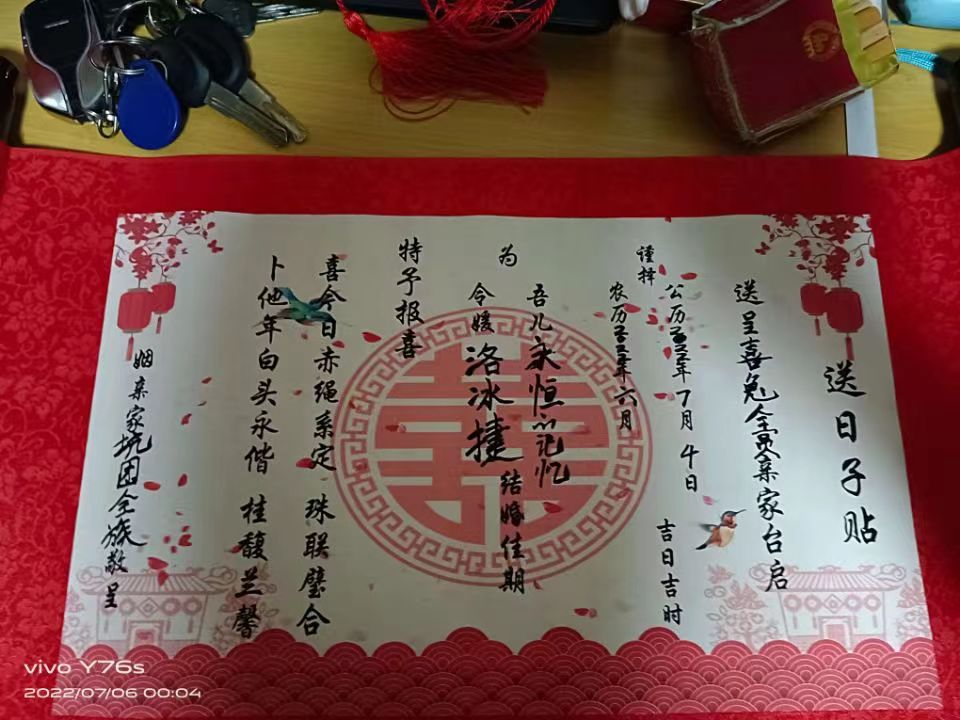 送日子贴
送呈喜兔全员亲家台启
谨择
公历二零二二年7月午日
吉日吉时
农历二零二二年六月
吾儿永恒心记忆
结婚佳期
为
令媛洛冰捷
特予报喜
喜今日赤绳系定 珠联璧合
卜他年白头永偕 桂馥兰馨
姻亲家坑团全族敬呈
vivo Y76s
2022/07/06 00:04